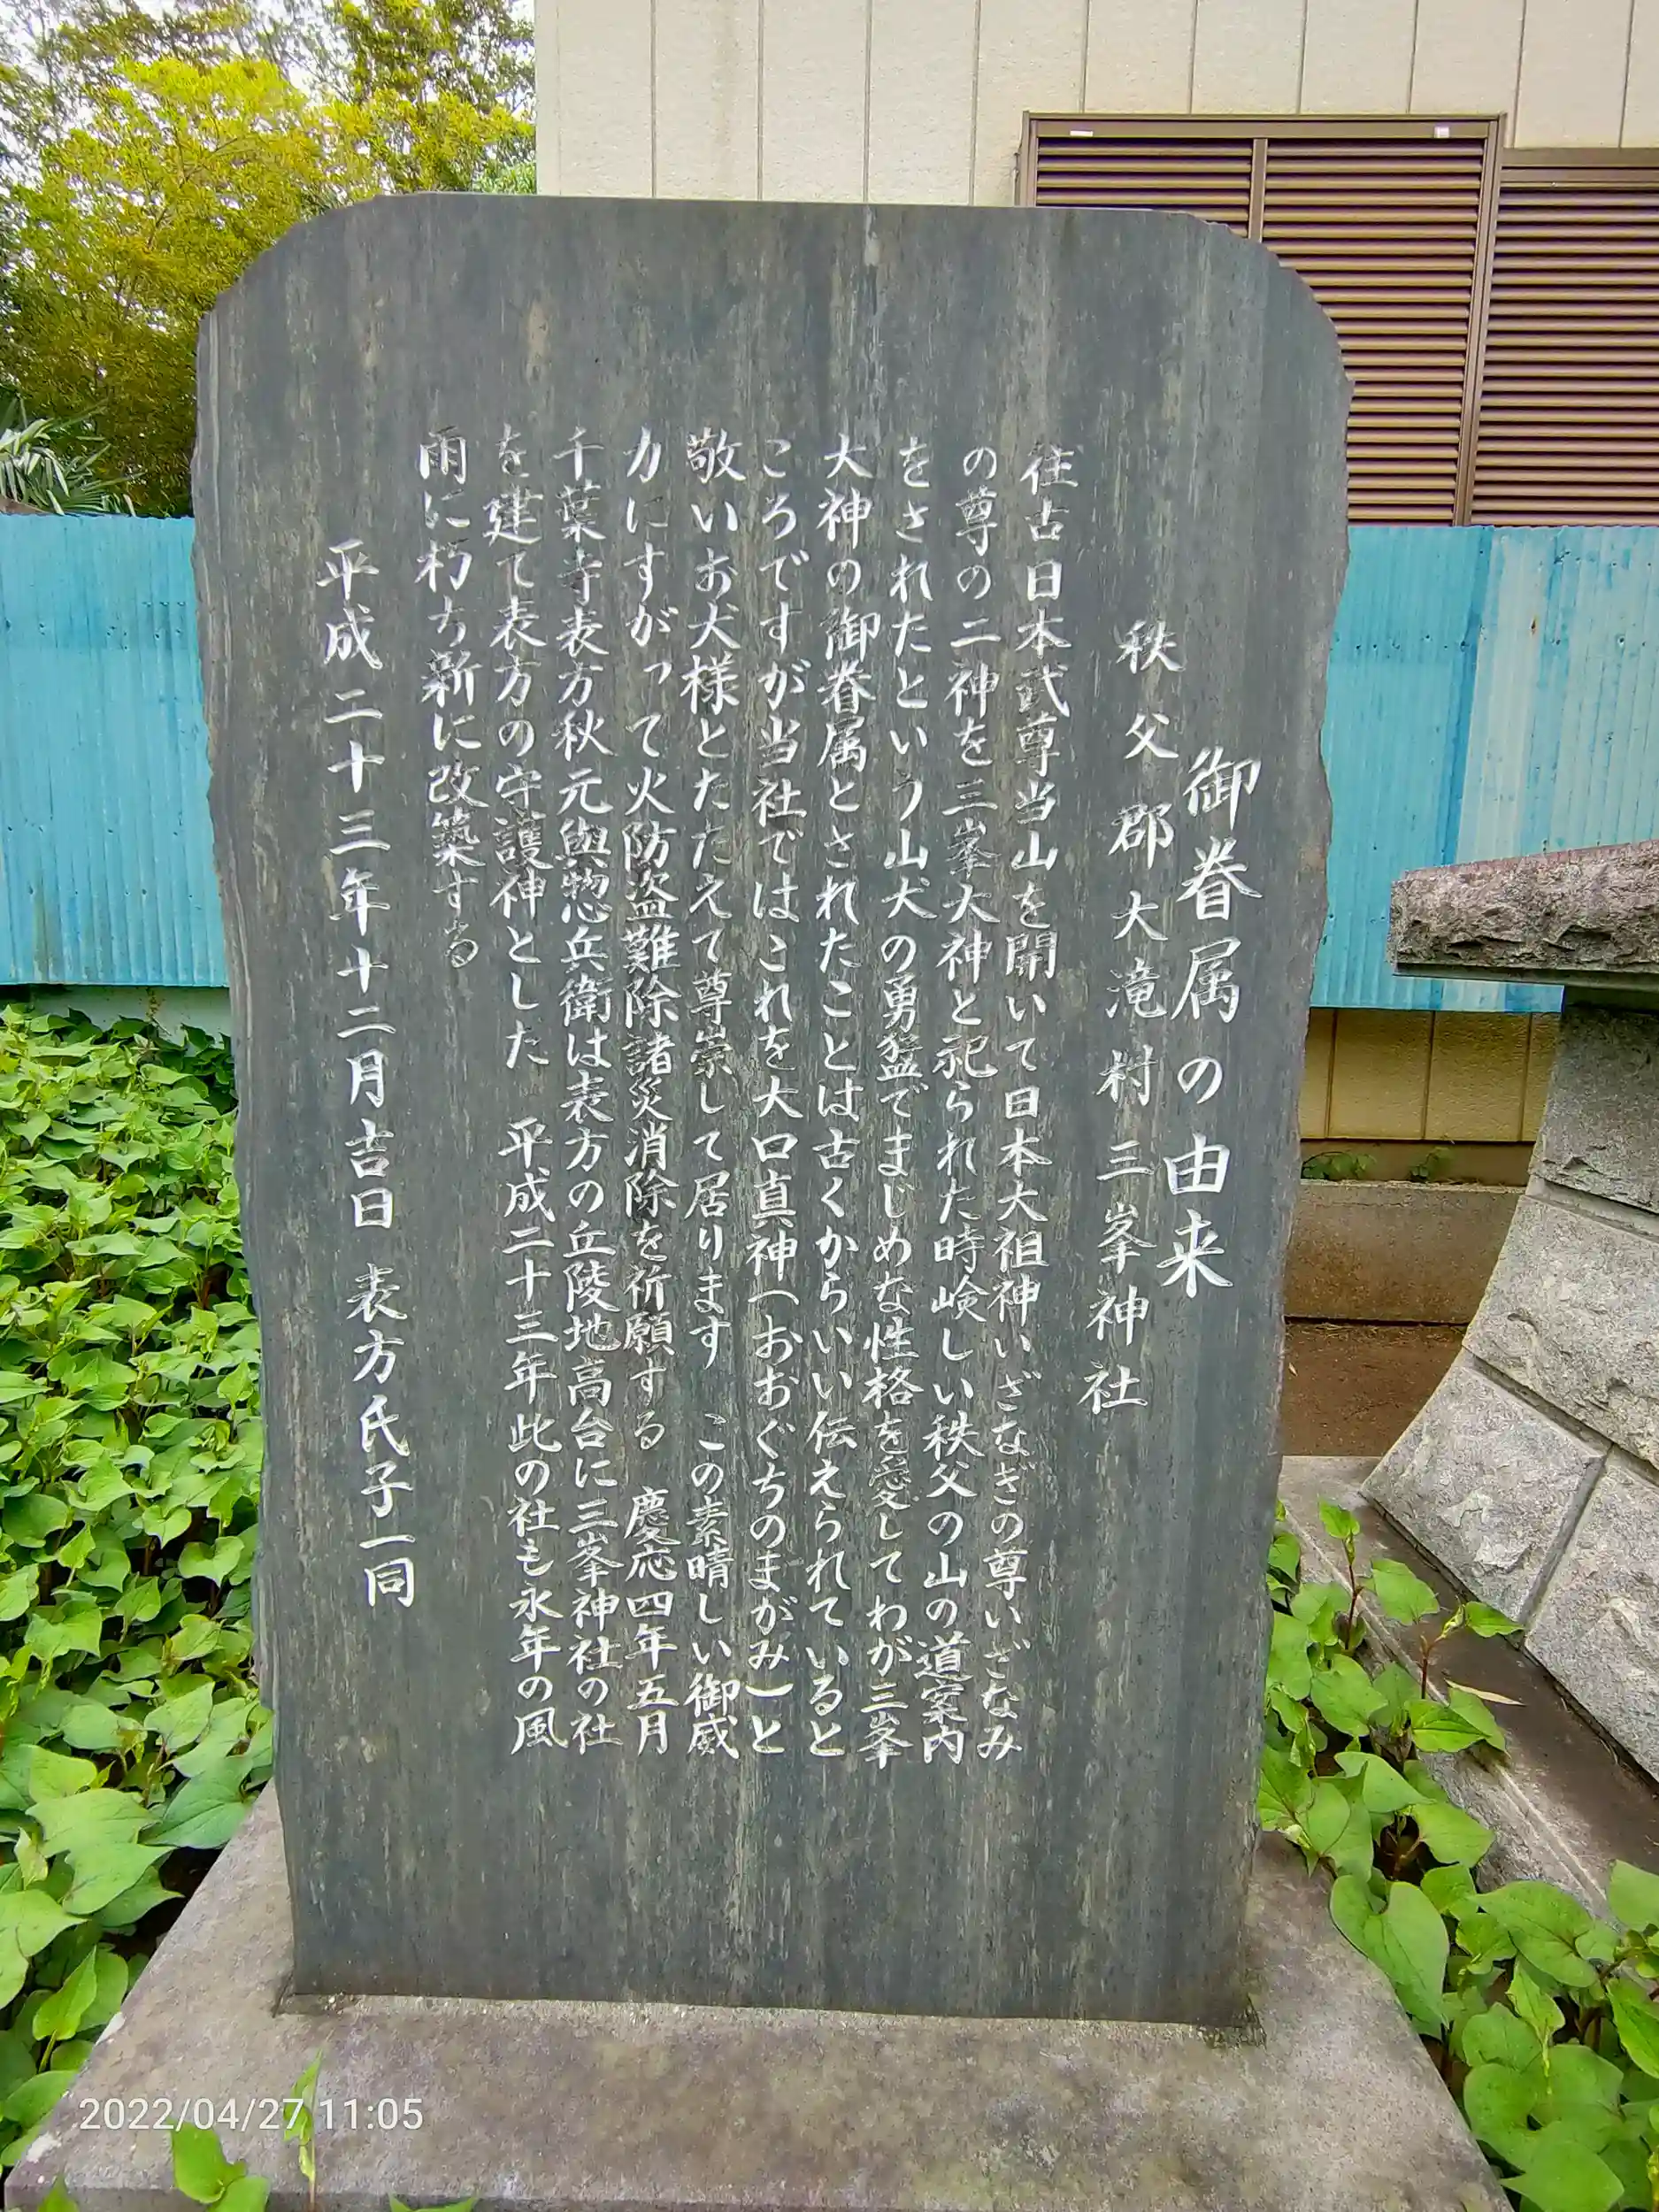 御眷属の由来
秩父郡大滝村三峯神社
往古日本武尊当山を開いて日本大祖神いざなぎの尊いざなみ
の尊の二神を三峯大神と祀られた時峻しい秩父の山の道案内
をされたという山犬の勇猛でまじめな性格を愛してわが三峯
大神の御眷属とされたことは古くからいい伝えられていると
ころですが当社ではこれを大口真神(おおぐちのまがみ)と
敬いお犬様とたたえて尊崇して居ります この素晴しい御威
力にすがって火防盗難除諸災消除を祈願する 慶応四年五月
千葉寺表方秋元與惣兵衛は表方の丘陵地高台に三峯神社の社
を建て表方の守護神とした 平成二十三年此の社も永年の風
雨に朽ち新に改築する
平成二十三年十二月吉日 表方氏子一同
2022/04/27 11:05